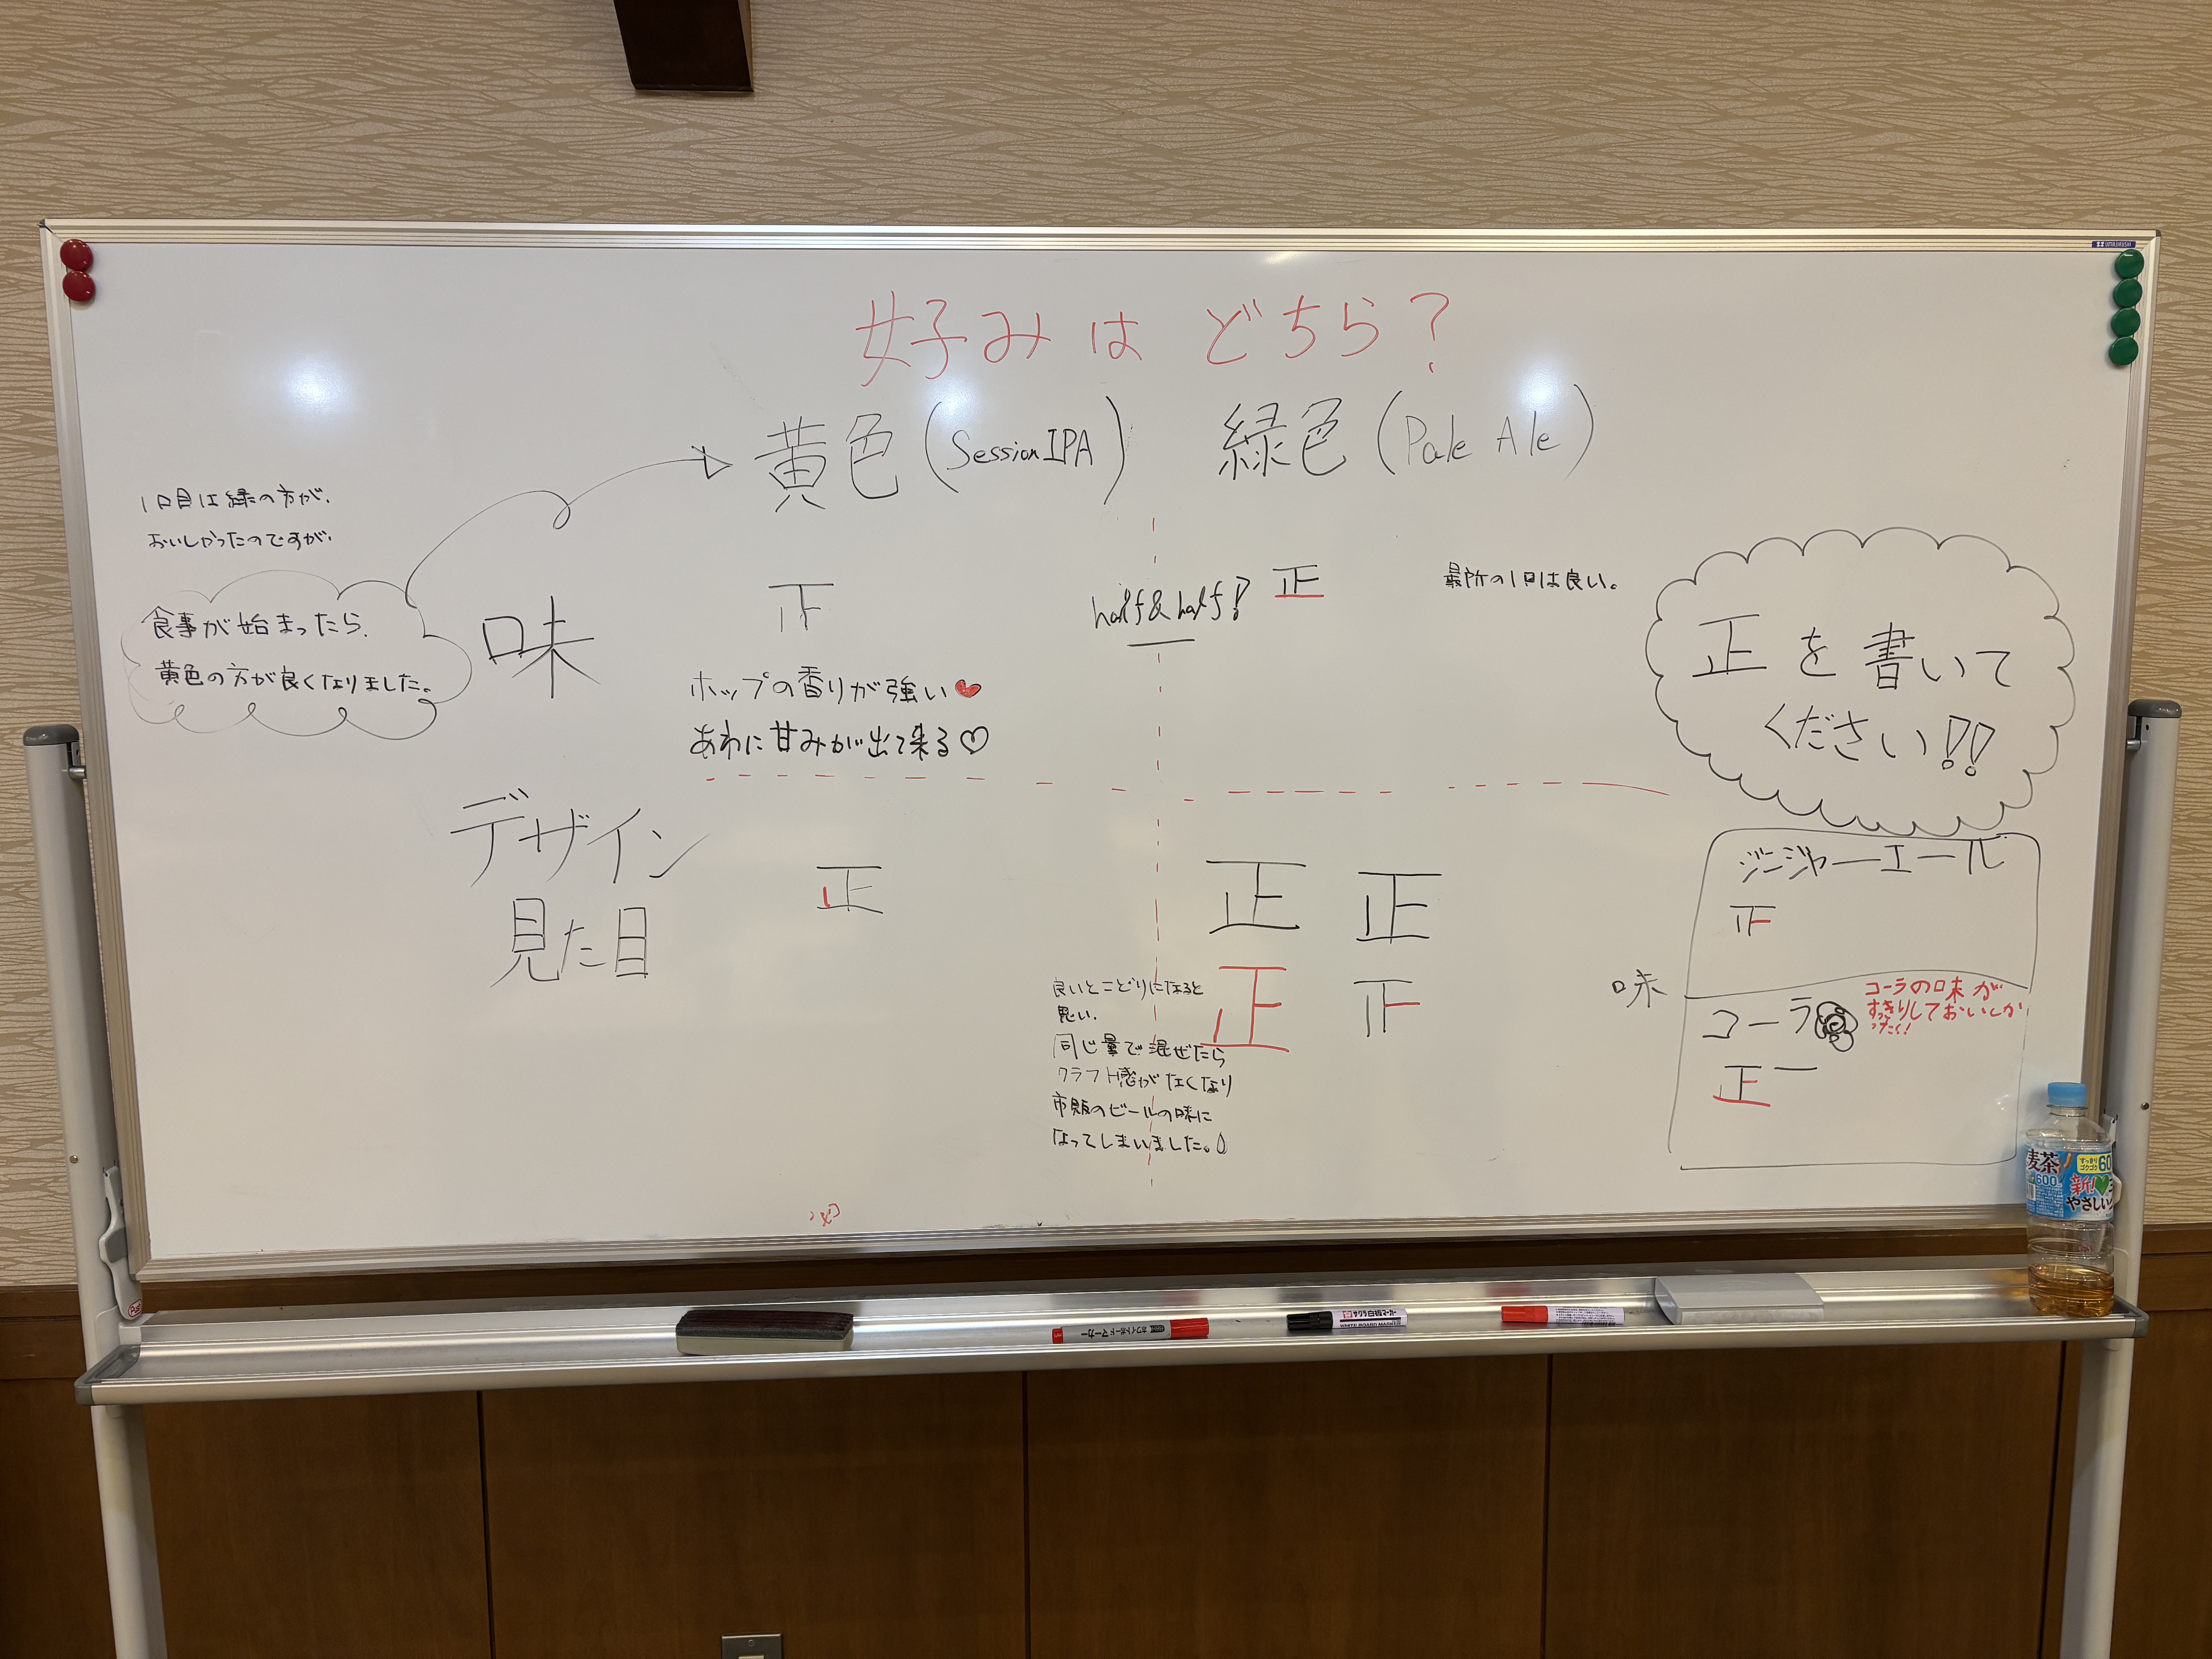 好みはどちら?
黄色(Session IPA)
緑色(Pale Ale)
1口目は緑の方が、
おいしかったのですが、
食事が始まったら、
黄色の方が良くなりました。
味
正
ホップの香りが強い♥
あわに甘みが出て来る♡
half&half!
正
最所の1口は良い。
正を書いて
ください!!
デザイン
見た目
正
正 正
正 正
良いとこどりになると
思い、
同じ量で混ぜたら
クラフト感がなくなり
市販のビールの味に
なってしまいました。
味
ジンジャーエール
コーラ
正一
コーラの味が
すっきりしておいしか
ったく!
麦茶
600
新!
やさしい
サクラ白板マーカー
WHITE BOARD MARKER